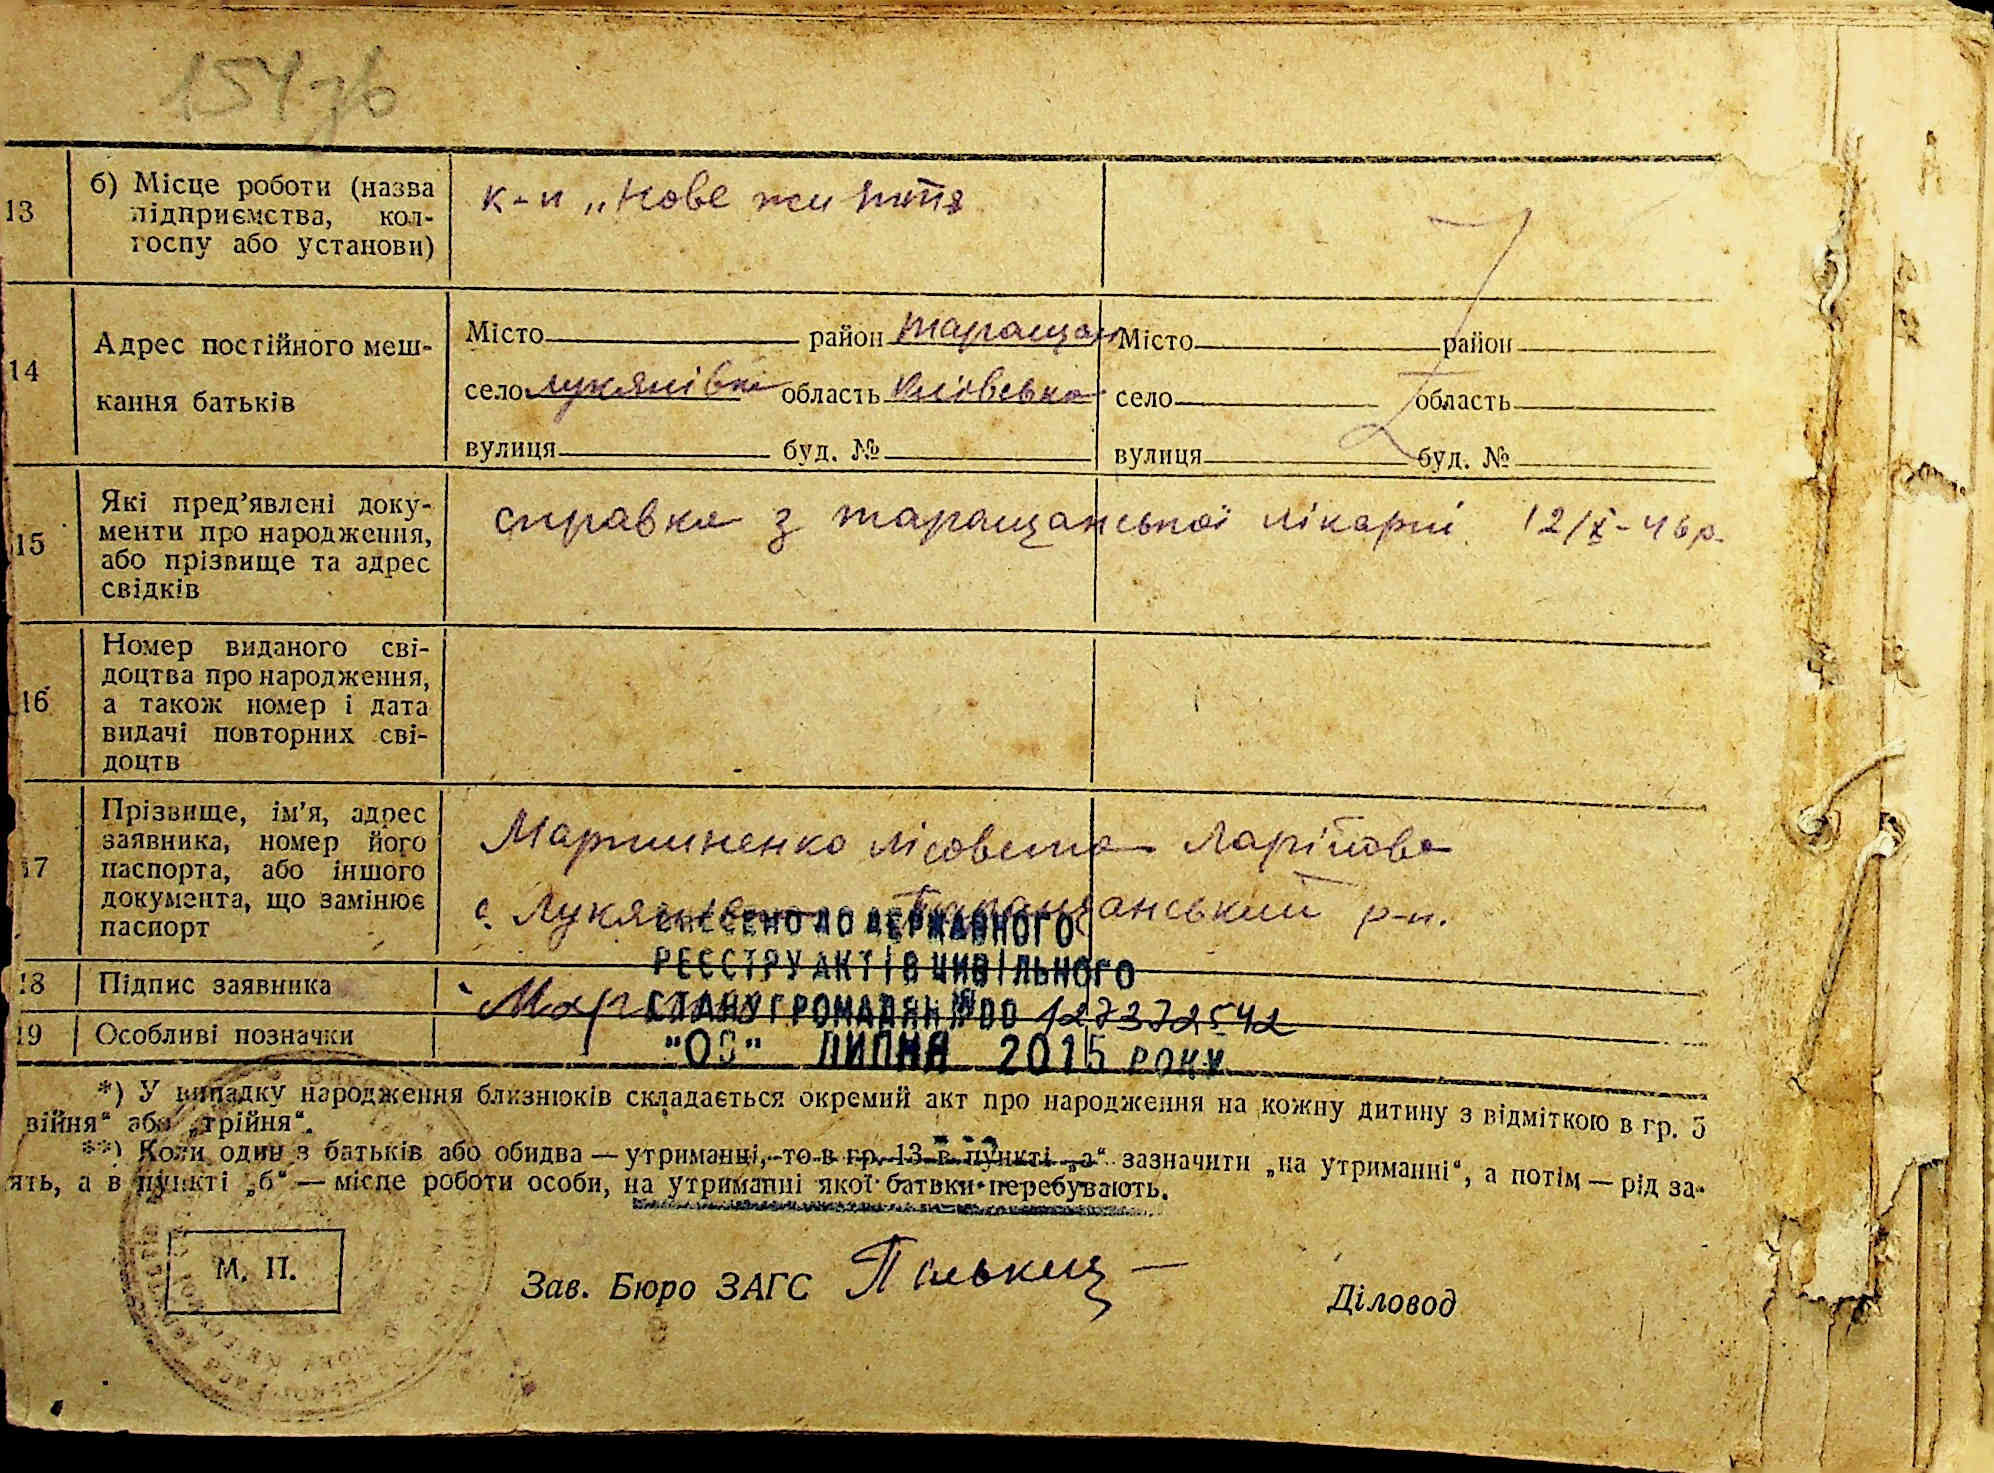 154зв
13
б) Місце роботи (назва
підприємства, кол-
госпу або установи)
к-п „Нове життя
14
Адрес постійного меш-
кання батьків
Місто район Таращан
село Лукянівка область Київська
вулиця буд. №
Місто район
село область
вулиця буд. №
15
Які пред’явлені доку-
менти про народження,
або прізвище та адрес
свідків
справка з таращанської лікарні 12/X-46р.
16
Номер виданого сві-
доцтва про народження,
а також номер і дата
видачі повторних сві-
доцтв
17
Прізвище, ім’я, адрес
заявника, номер його
паспорта, або іншого
документа, що замінює
паспорт
Мартиненко Лісовета
с. Лукянівка Таращанський р-н.
ВНЕСЕНО ДО ДЕРЖАВНОГО
РЕЄСТРУ АКТІВ ЦИВІЛЬНОГО
СТАНУ ГРОМАДЯН № 00 127372542
ЛИПНЯ 2015 РОКУ
18
Підпис заявника
19
Особливі позначки
*) У випадку народження близнюків складається окремий акт про народження на кожну дитину з відміткою в гр. 5
війня“ або „трійня“.
**) Коли один з батьків або обидва — утриманні, то в гр. 13 в пункті „а“ зазначити „на утриманні“, а потім — рід за-
ять, а в пункті „б“ — місце роботи особи, на утриманні якої батвки перебувають.
М. П.
Зав. Бюро ЗАГС
Діловод